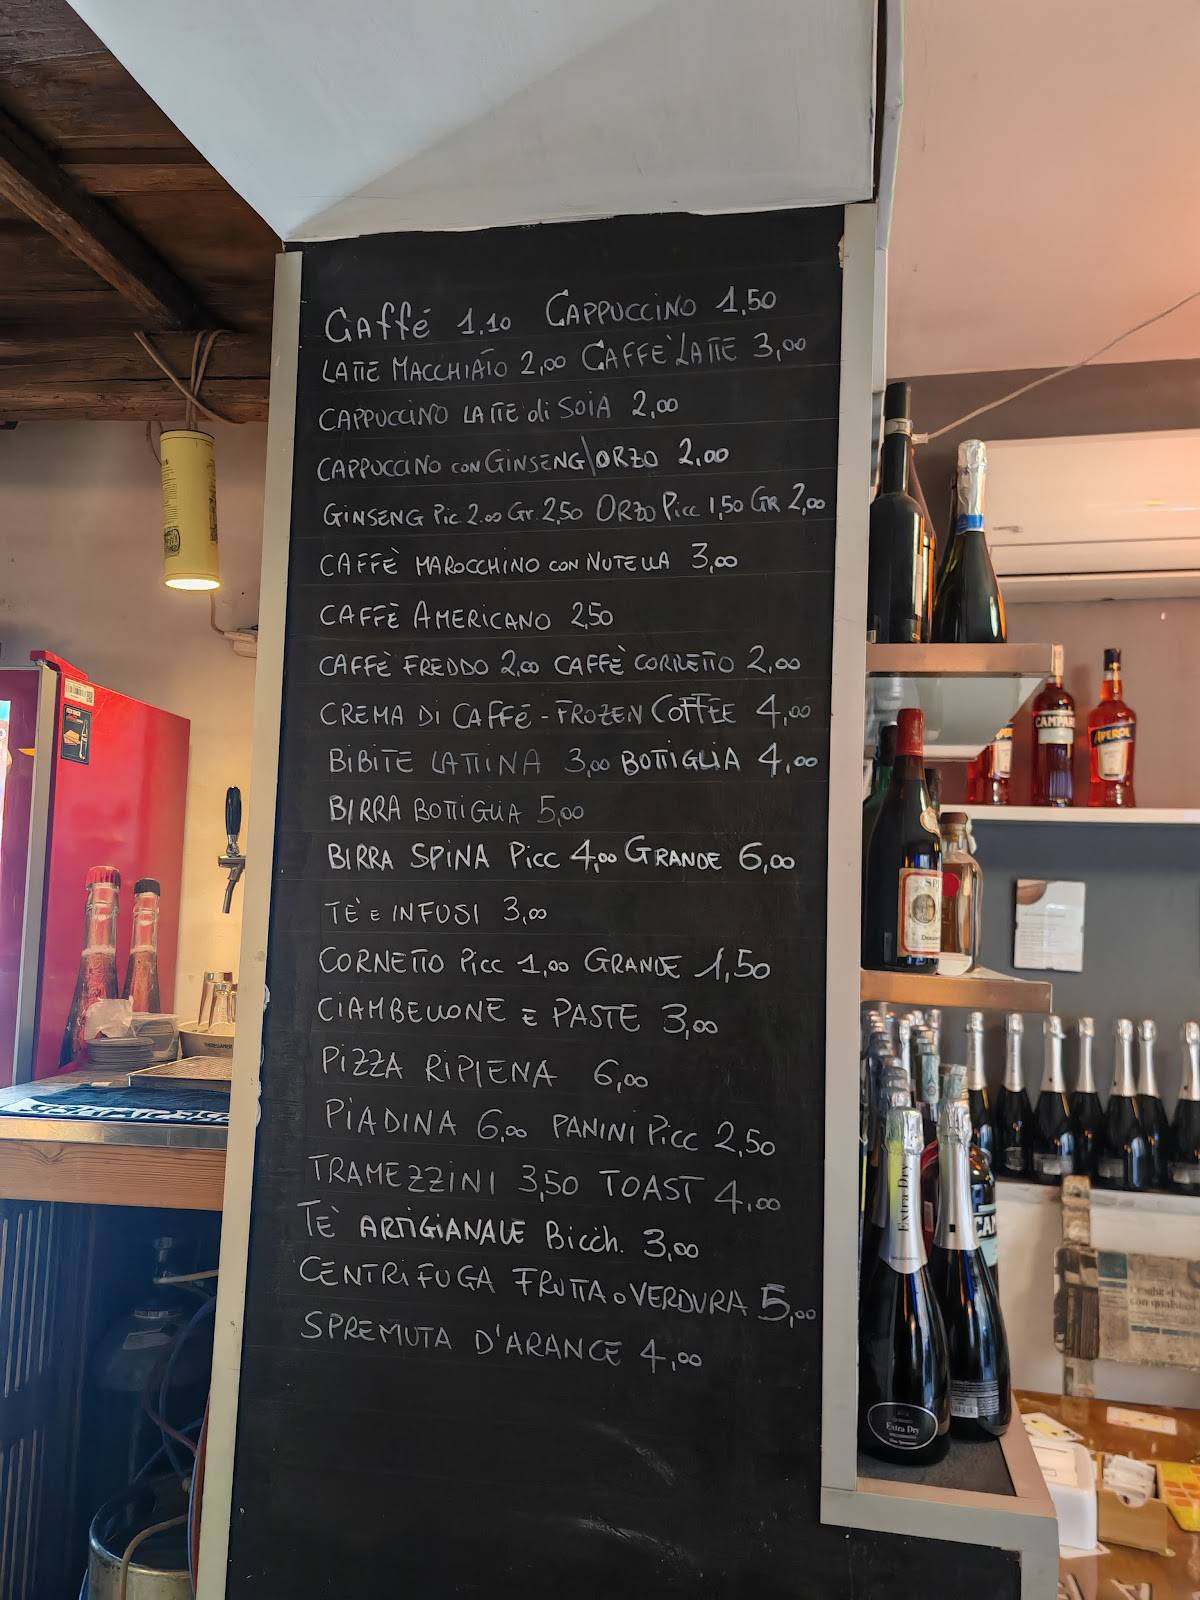 Caffé 1.10 CAPPUCCINO 1,50
LATTE MACCHIATO 2,00 CAFFÈ LATTE 3,00
CAPPUCCINO LATTE di SOIA 2,00
CAPPUCCINO CON GINSENG\ORZO 2,00
GINSENG Pic 2.00 Gr. 2,50 ORZO Picc 1,50 GR 2,00
CAFFÈ MAROCCHINO CON NUTELLA 3,00
CAFFÈ AMERICANO 2,50
CAFFÈ FREDDO 2,00 CAFFÈ CORRETTO 2,00
CREMA DI CAFFÉ - FROZEN COFFEE 4,00
BIBITE LATTINA 3,00 BOTTIGLIA 4,00
BIRRA BOTTIGLIA 5,00
BIRRA SPINA Picc 4,00 GRANDE 6,00
TÈ E INFUSI 3,00
CORNETTO Picc 1,00 GRANDE 1,50
CIAMBELLONE E PASTE 3,00
PIZZA RIPIENA 6,00
PIADINA 6,00 PANINI Picc 2,50
TRAMEZZINI 3,50 TOAST 4,00
TÈ ARTIGIANALE Bicch. 3,00
CENTRIFUGA FRUTTA O VERDURA 5,00
SPREMUTA D'ARANCE 4,00
CAMPARI
APEROL
Extra Dry
Extra Dry